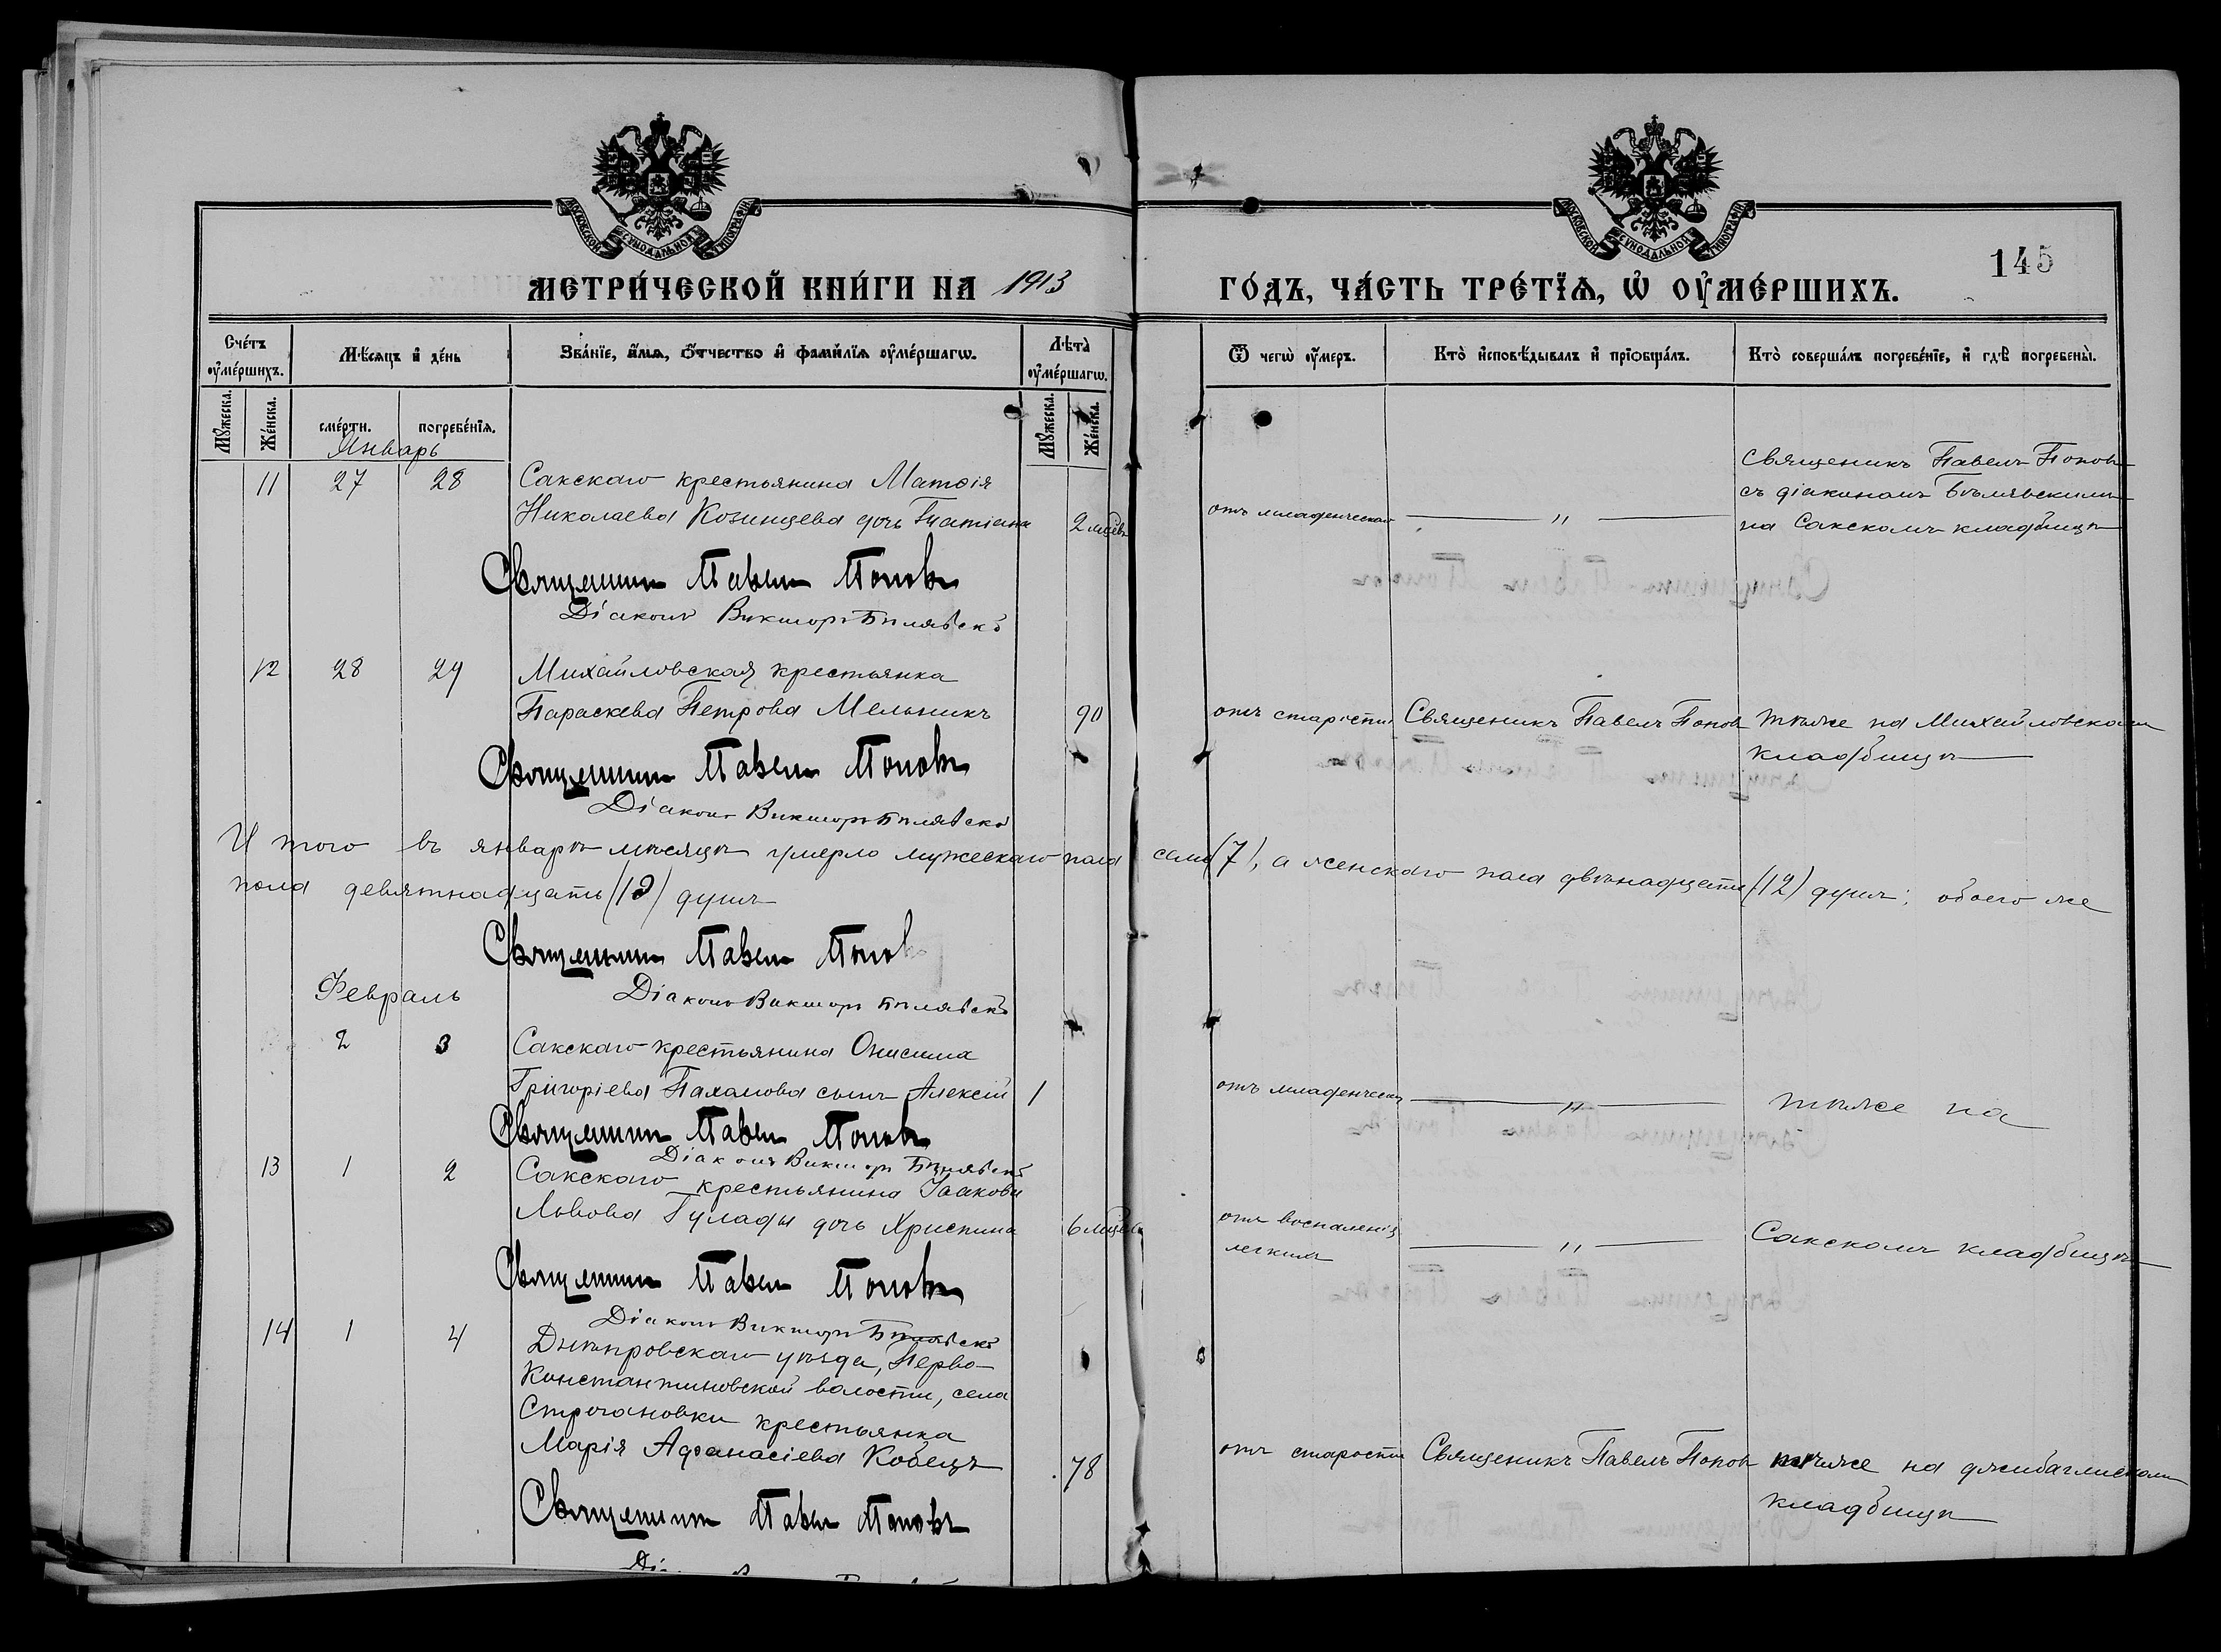 МОСКОВСКОЙ СѴНОДАЛЬНОЙ ТИПОГРАФІИ
МОСКОВСКОЙ СѴНОДАЛЬНОЙ ТИПОГРАФІИ
145
МЕТРИ́ЧЕСКОЙ КНИ́ГИ НА 1913 ГО́ДЪ, ЧА́СТЬ ТРЕ́ТЇѦ, Ѡ҆ ОУ҆МЕ́РШИХЪ.
Сче́тъ оу҆ме́ршихъ.
Мѣ́сяцъ и҆ де́нь
Зва́нїе, и҆́мѧ, ѻ҆́тчество и҆ фами́лїѧ оу҆ме́ршагѡ.
Лѣ́та оу҆ме́ршагѡ.
Ѿ чегѡ̀ оу҆́меръ.
Кто̀ и҆сповѣ́дывалъ и҆ прїѻбща́лъ.
Кто̀ соверша́лъ погребе́нїе, и҆ гдѣ̀ погребены̀.
Мꙋ́жеска.
Же́нска.
сме́рти.
погребе́нїѧ.
Мꙋ́жеска.
Же́нска.
Январь
11 27 28 Сакскаго крестьянина Матѳія
Николаева Козинцева дочь Татіана 2 мѣсѣвъ
отъ младенческой " Священикъ Павелъ Поповъ
съ діакономъ Бѣлявскимъ
на Сакскомъ кладбищѣ
Священникъ Павелъ Поповъ
Діаконъ Викторъ Бѣлявскій
12 28 29 Михайловская крестьянка
Параскева Петрова Мельникъ 90 отъ старости Священикъ Павелъ Поповъ тѣмже на Михайловскомъ
кладбищѣ
Священникъ Павелъ Поповъ
Діаконъ Викторъ Бѣлявскій
И того въ январѣ мѣсяцѣ умерло мужескаго пола семь (7), а женскаго пола двѣнадцать (12) душъ; обоего же
пола девятнадцать (19) душъ
Священникъ Павелъ Поповъ
Діаконъ Викторъ Бѣлявскій
Февраль
2 3 Сакскаго крестьянина Онисима
Григоріева Пахамова сынъ Алексій 1 отъ младенческой " тѣмже на
Священникъ Павелъ Поповъ
Діаконъ Викторъ Бѣлявскій
13 1 2 Сакскаго крестьянина Іаакова
Львова Гулады дочь Христина 6 мѣсцевъ отъ воспаленія
легкихъ " Сакскомъ кладбищѣ
Священникъ Павелъ Поповъ
Діаконъ Викторъ Бѣлявскій
14 1 4 Днѣпровскаго уѣзда, Перво-
Константиновской волости, села
Строгановки крестьянка
Марія Афанасіева Кобецъ 78 отъ старости Священикъ Павелъ Поповъ тѣмже на
кладбищѣ
Священникъ Павелъ Поповъ